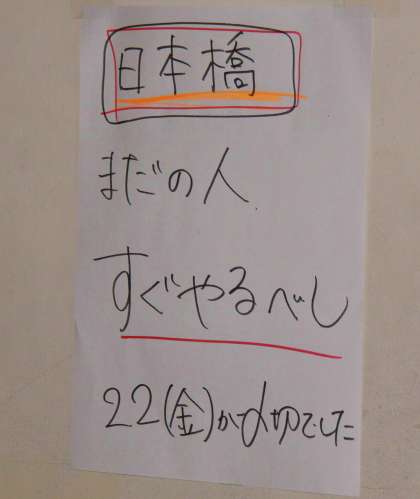 日本橋
まだの人
すぐやるべし
22(金)が〆切でした